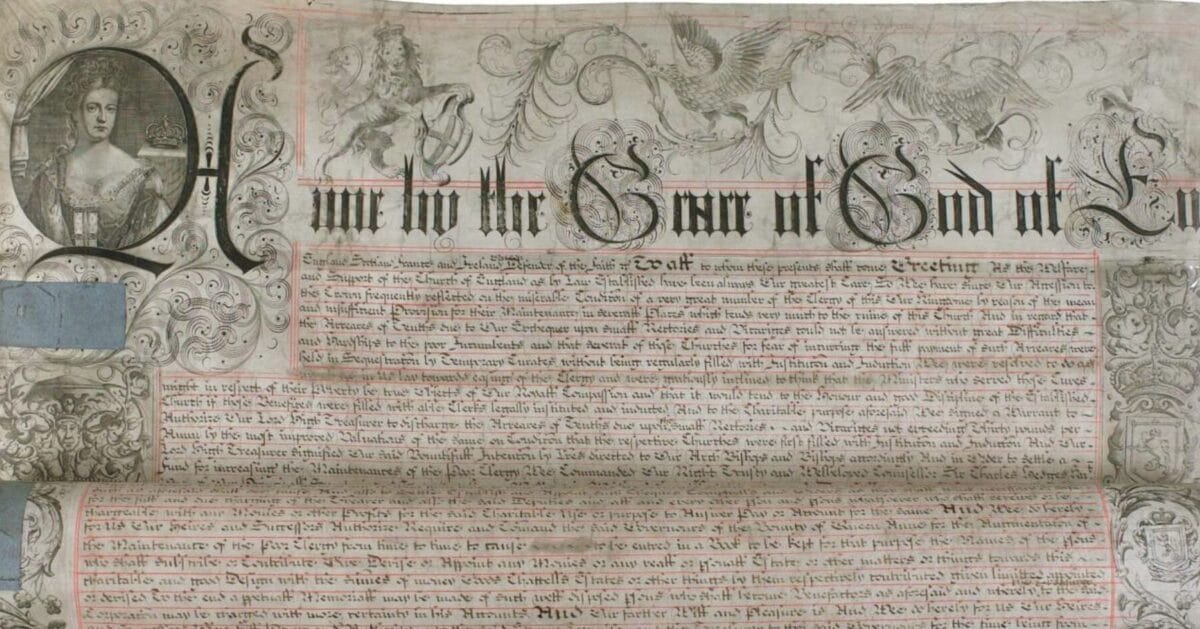 Anne by the Grace of God of En
England Scotland France and Ireland Defender of the Faith &c To all to whom these presents shall come Greeting As the Welfare
and Support of the Church of England as by Law Established have been always Our greatest Care So Wee have since Our Accession to
the Crown frequently reflected on the miserable Condition of a very great number of the Clergy of this Our Kingdome by reason of the mean
and insufficient Provision for their Maintenance in severall Places which tends very much to the ruine of this Church And in regard that
the Arreares of Tenths due to Our Exchequer upon small Rectories and Vicariges could not be answered without great Difficulties
and Hardships to the poor Incumbents and that severall of those Churches for fear of incurring the full payment of such Arreares were
held in Sequestration by Temporary Curates without being regularly filled with Institution and Induction Wee were resolved to do as
in us lay towards easing of the Clergy and were gratiously inclined to think that the Ministers who served those Cures
might in respect of their Poverty be true Objects of Our Royall Compassion and that it would tend to the Honour and good Discipline of the Established
Church if those Benefices were filled with able Clerks legally instituted and inducted And to the Charitable purpose aforesaid Wee signed a Warrant to
Authorize Our Lord High Treasurer to discharge the Arreares of Tenths due upon the small Rectories and Vicariges not exceeding Thirty pounds per
Annum by the most improved Valuations of the same on Condition that the respective Churches were first filled with Institution and Induction And Our
Lord High Treasurer signified Our said Bountifull Intention by Lres directed to Our Arch Bishops and Bishops accordingly And in Order to settle a
fund for increasing the Maintenances of the Poor Clergy Wee Commanded Our Right Trusty and Welbeloved Counsellor Sr Charles Hedges
for the full and due and every
chargeable with our Monies or the Profits for the said Charitable Use or purpose to Answer Pay or Account for the same And Wee do hereby
for Us Our Heires and Successors Authorize Require and Comand the said Governours of the Bounty of Queen Anne for the Augmentation of
the Maintenance of the Poor Clergy from time to time to cause to be entred in a Book to be kept for that purpose the Names of the psons
who shall subscribe or Contribute Give Devise or Appoint any Monies or any reall or psonall Estate or other matters or things towards this
charitable and good Design with the summes of money Goods Chattells Estates or other things by them respectively contributed given limitted appointed
or devised To the end a ppetuall Memoriall may be made of such well disposed psons who shall become Benefactors as aforesaid and whereby the said
Corporation may be charged with more certainty in his Accounts And Our further Will and Pleasure is And Wee do hereby for Us Our Heires